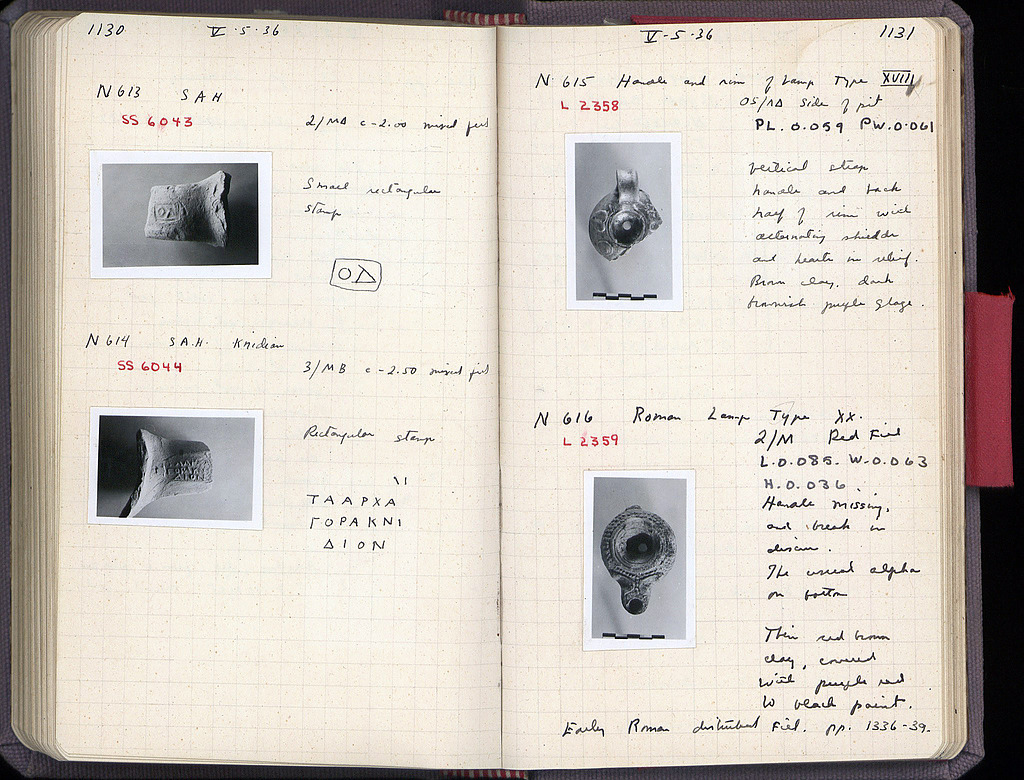 1130
V·5·36
N 613 SAH
SS 6043
2/MΔ c-2.00 mixed fill
Small rectangular
stamp
ΟΔ
N 614 S.A.H. Knidian
SS 6044
3/MB c-2.50 mixed fill
Rectangular stamp
\Ι
ΤΑΑΡΧΑ
ΓΟΡΑΚΝΙ
ΔΙΟΝ
V-5·36
1131
N 615 Handle and rim of Lamp Type XVIII
L 2358
OS/ΛΔ side of pit
PL. 0.059 PW. 0.061
Vertical strap
handle and back
half of rim with
alternating shields
and hearts in relief.
Brown clay, dark
brownish purple glaze.
N 616 Roman Lamp Type XX.
L 2359
2/M Red Fill
L. 0.085. W. 0.063
H. 0.036.
Handle missing,
and break in
discus.
The usual alpha
on bottom
Thin red brown
clay, covered
with purple red
to black paint.
Early Roman disturbed Fill. pp. 1336-39.